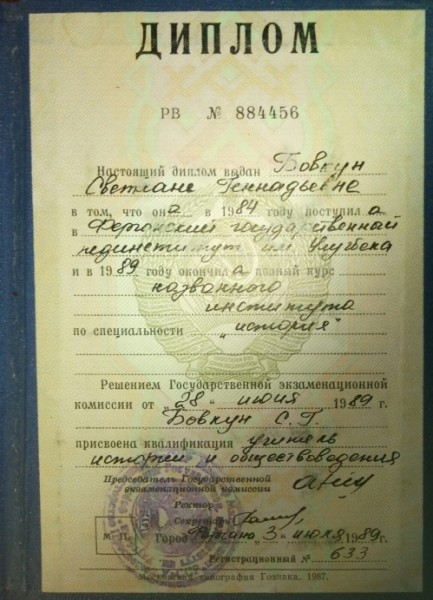 ДИПЛОМ
РВ № 884456
Настоящий диплом выдан Бовкун
Светлане Геннадьевне
в том, что она в 1984 году поступила
в Ферганский государственный
пединститут им. Улугбека
и в 1989 году окончила полный курс
названного
института
по специальности „история"
Решением Государственной экзаменационной
комиссии от „28" июня 1989 г.
Бовкун С. Г.
присвоена квалификация учитель
истории и обществоведения
Председатель Государственной
экзаменационной комиссии
Ректор
Секретарь
М. П. Город Фергана „3" июля 1989 г.
Регистрационный № 633
Московская типография Гознака. 1987.